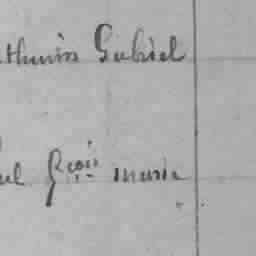 thurin Gabriel
el Fçois marie